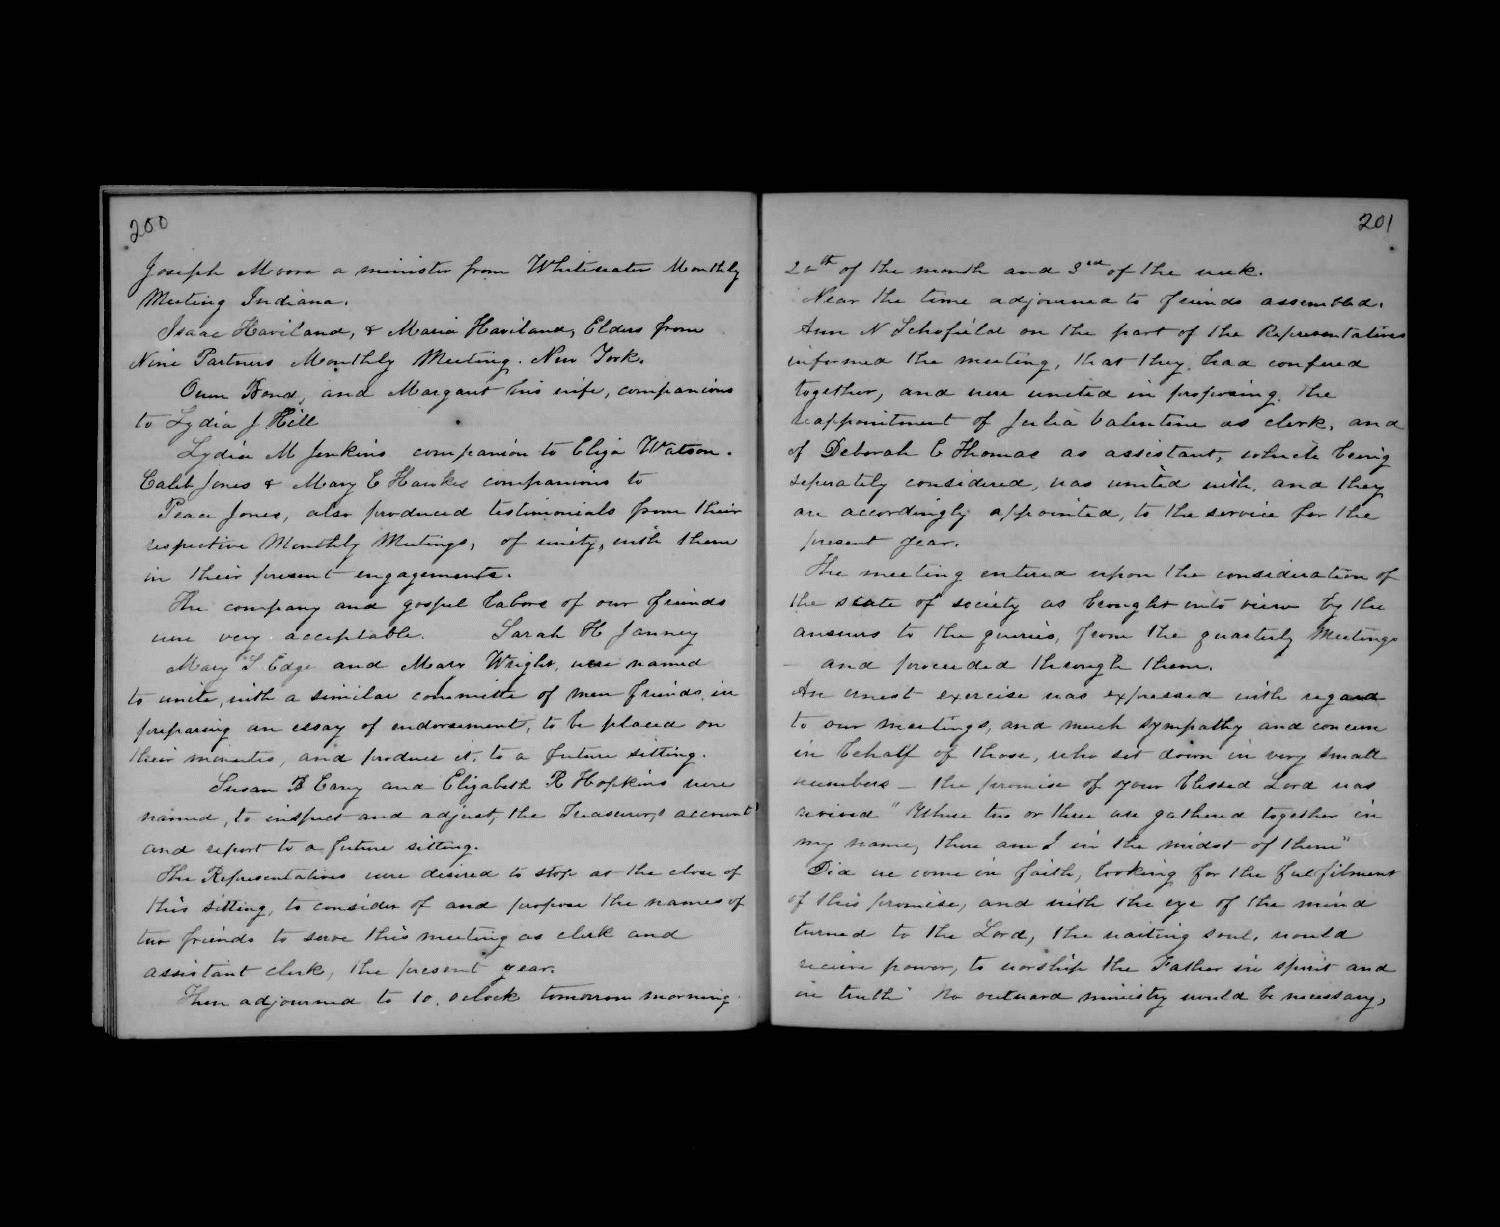 200
Joseph Moore a minister from Whitewater Monthly
Meeting Indiana.
Isaac Haviland, & Maria Haviland, Elders from
Nine Partners Monthly Meeting. New York.
Owen Bond, and Margaret his wife, companions
to Lydia J Hill
Lydia M Jenkins companion to Eliza Watson.
Caleb Jones & Mary C Hawkes companions to
Peace Jones, also produced testimonials from their
respective Monthly Meetings, of unity, with them
in their present engagements.
The company and gospel labors of our friends
were very acceptable. Sarah H Janney
Mary S Edge and Mary Wright, were named
to unite, with a similar committe of men friends, in
preparing an essay of endorsement, to be placed on
their minutes, and produce it, to a future sitting.
Susan B Carey and Elizabeth R Hopkins were
named, to inspect and adjust, the Treasurer,s account
and report to a future sitting.
The Representatives were desired to stop at the close of
this sitting, to consider of and propose the names of
two friends to serve this meeting as clerk and
assistant clerk, the present year.
Then adjourned to 10. oclock tomorrow morning.
201
20th of the month and 3rd of the week.
Near the time adjourned to friends assembled.
Ann N Schofield on the part of the Representatives
informed the meeting, that they, had confered
together, and were united in proposing, the
reappointment of Julia Valentine as clerk, and
of Deborah C Thomas as assistant, which being
seperately considered, was united with, and they
are accordingly appointed, to the service for the
present year.
The meeting entered upon the consideration of
the state of society as brought into view by the
answers to the queries, from the quarterly Meetings
and proceeded through them.
An ernest exercise was expressed with regard
to our meetings, and much sympathy and concern
in behalf of those, who sit down in very small
numbers – the promise of your blessed Lord was
revived "Where two or three are gathered together in
my name, there am I in the midst of them"
Did we come in faith, looking for the fulfilment
of this promise, and with the eye of the mind
turned to the Lord, the waiting soul, would
receive power, to worship the Father in spirit and
in truth" No outward ministry would be necessary,